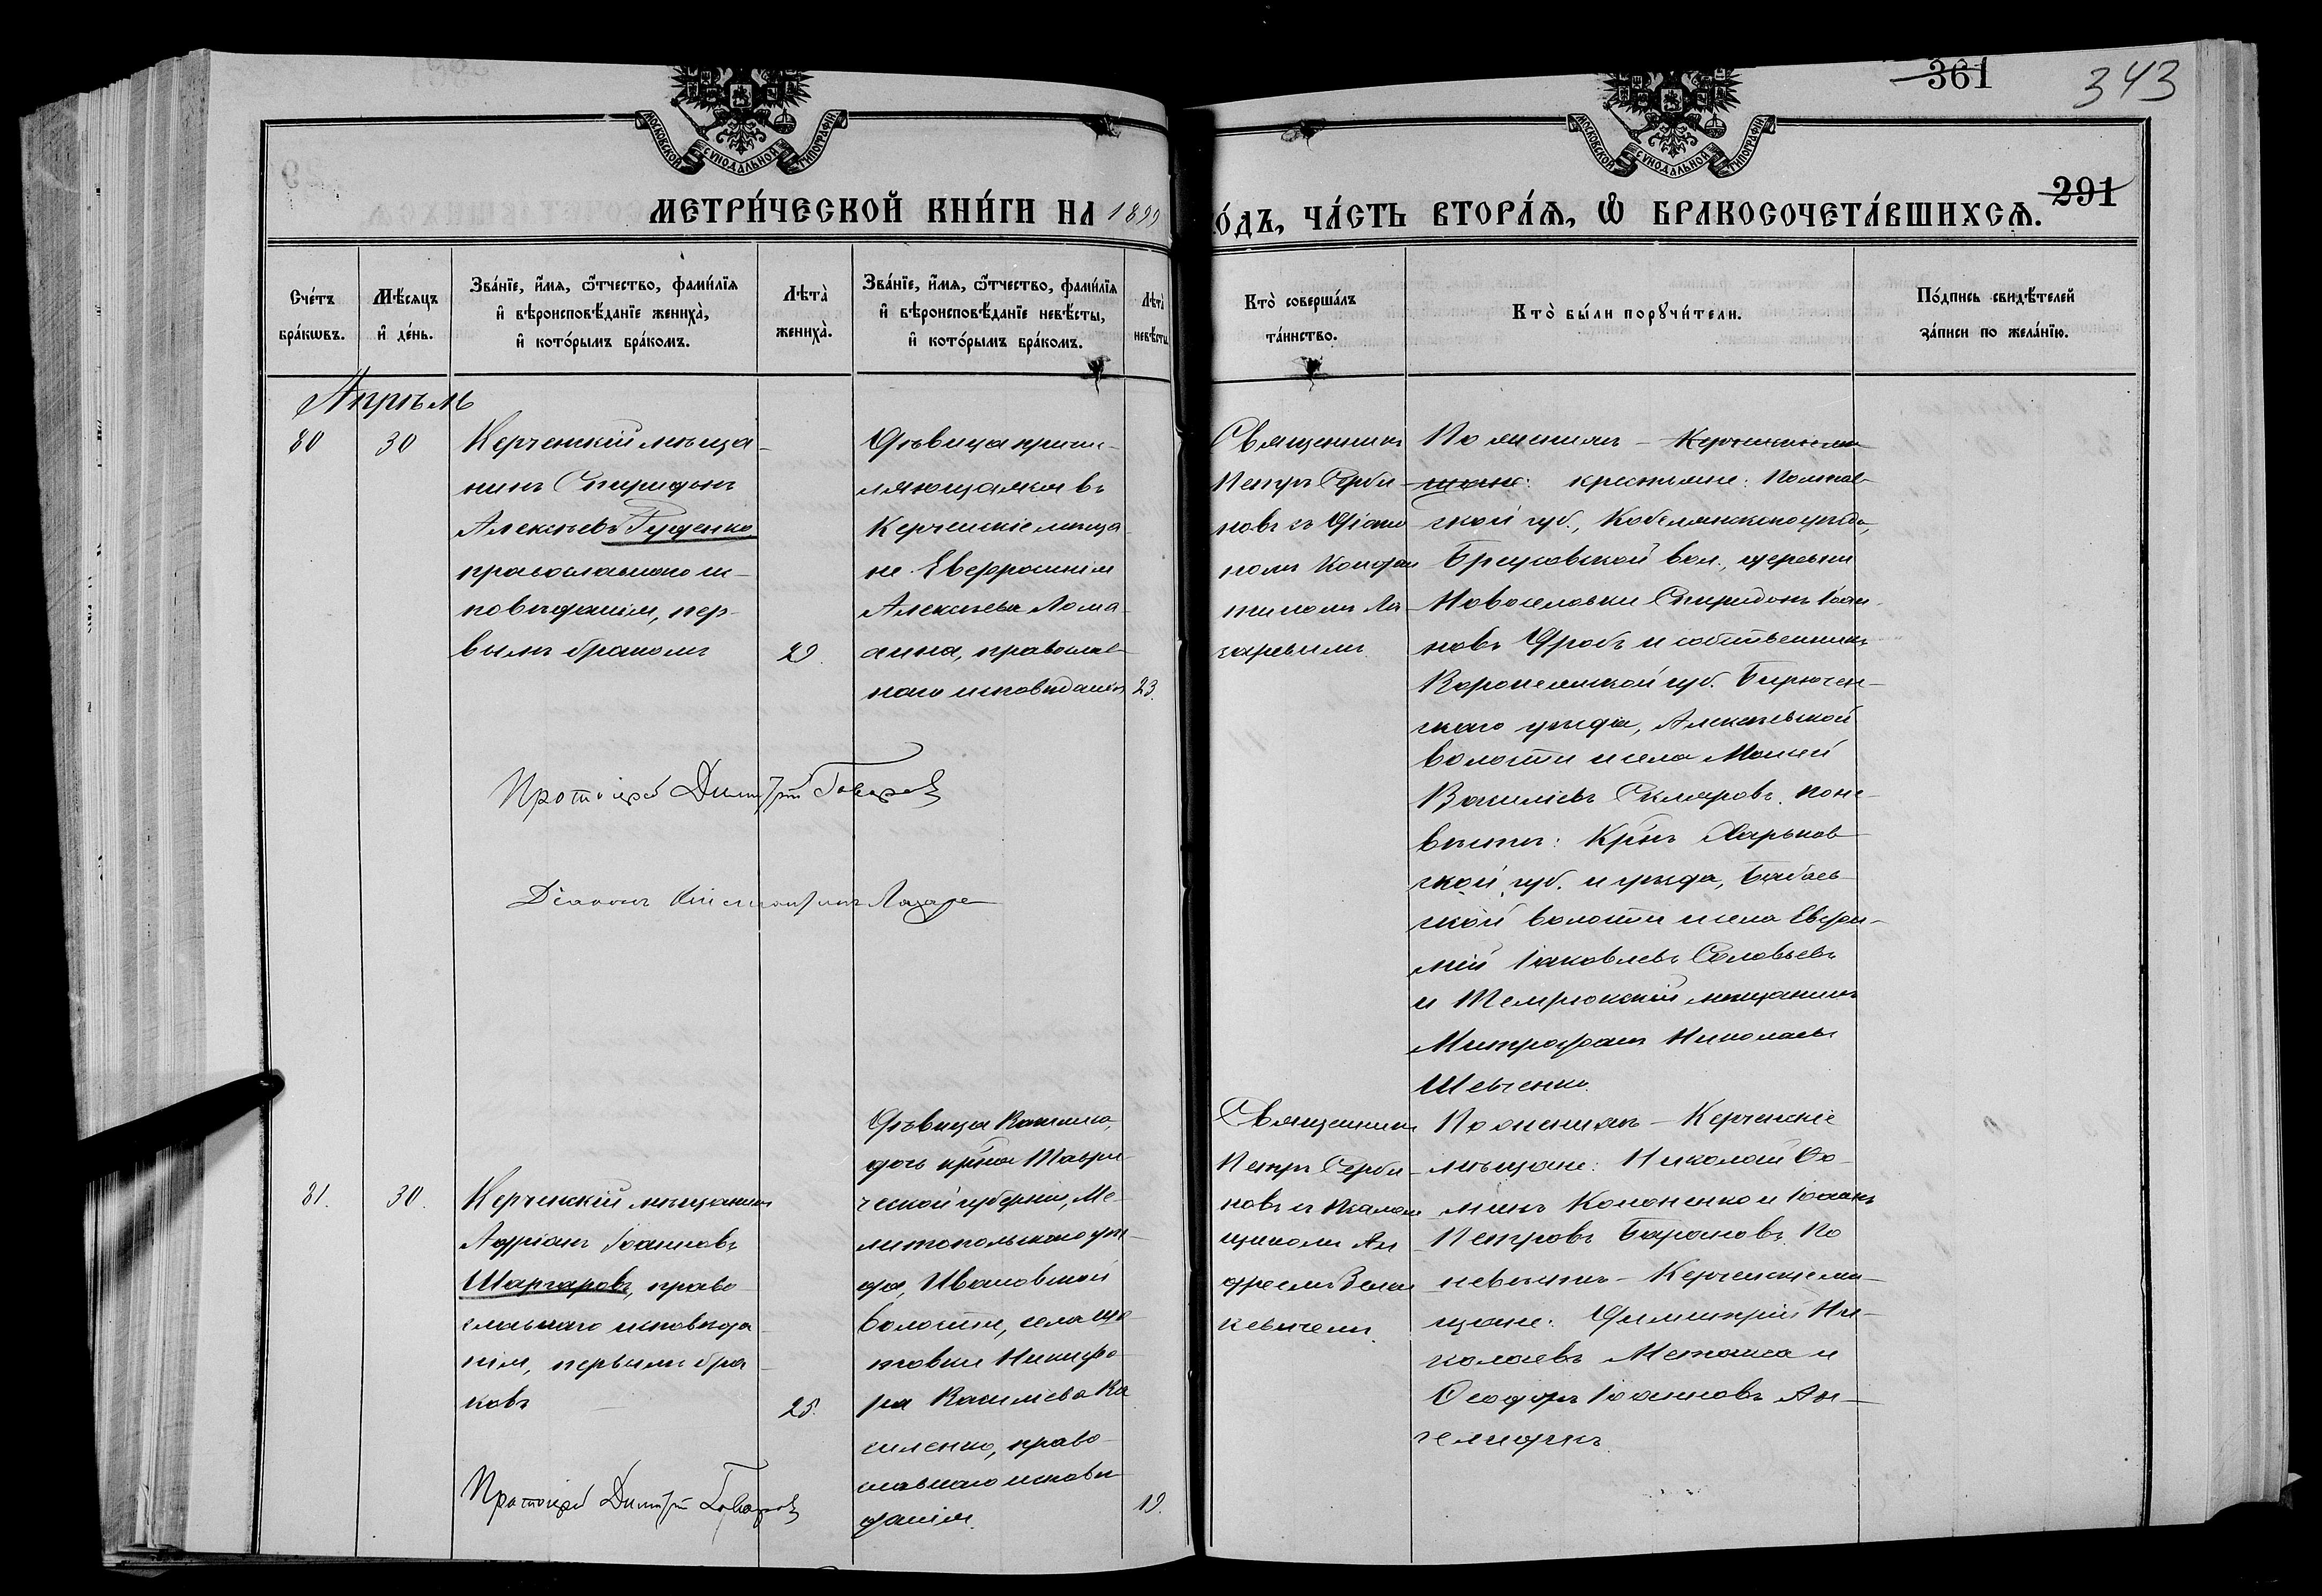 361
343
291
МОСКОВСКОЙ СѴНОДАЛЬНОЙ ТИПОГРАФІИ
МОСКОВСКОЙ СѴНОДАЛЬНОЙ ТИПОГРАФІИ
МЕТРИ́ЧЕСКОЙ КНИ́ГИ НА 1899
О́ДЪ, ЧА́СТЬ ВТОРА́Ѧ, Ѽ БРАКОСОЧЕТА́ВШИХСѦ.
Сче́тъ бра́кѡвъ.
Мѣ́сяцъ и҆ де́нь.
Зва́нїе, и҆́мѧ, ѻ҆́тчество, фами́лїѧ
и҆ вѣроисповѣ́данїе жениха̀,
и҆ кото́рымъ бра́комъ.
Лѣта̀ жениха̀.
Зва́нїе, и҆́мѧ, ѻ҆́тчество, фами́лїѧ
и҆ вѣроисповѣ́данїе невѣ́сты,
и҆ кото́рымъ бра́комъ.
Лѣта̀ невѣ́сты
Кто̀ соверша́лъ
та́инство.
Кто̀ бы́ли порꙋчи́тели.
По́дпись свидѣ́телей
за́писи по жела́нїю.
Апрѣль
80
30
Керченскій мѣща-
нинъ Спиридонъ
Алексѣевъ Гуденко,
православнаго ис-
повѣданія, пер-
вымъ бракомъ
29.
Дѣвица причи-
сляющаяся въ
Керченскіе мѣща
не Евфросинія
Алексѣева Лома
анна, православ-
наго исповѣданія
23.
Священникъ
Петръ Серби-
новъ съ Діако
номъ Констан
тиномъ Ла-
заревымъ.
По женихѣ – Керченскіе мѣ
щане: крестьяне: Полтав-
ской губ., Кобелякскаго уѣзда,
Бреусовской вол., деревни
Новоселовки Спиридонъ Іоан-
новъ Дробъ и собственникъ
Воронежской губ. Бирючен-
скаго уѣзда, Алексѣевской
волости и села Моисей
Василіевъ Скляровъ. По не-
вѣстѣ: Кр̃нъ Харьков-
ской губ. и уѣзда, Бабаев-
ской волости и села Евфи-
мій Іаковлевъ Соловьевъ
и Темрюкскій мѣщанинъ
Митрофанъ Николаевъ
Шевченко.
Протоіерей Димитрій
Діаконъ Константинъ Лазаре
81.
30.
Керченскій мѣщанинъ
Адріанъ Іоанновъ
Шапаровъ, право
славнаго исповѣда-
нія, первымъ бра-
комъ
25.
Дѣвица Васса,
дочь кр̃на Таври-
ческой губерніи, Ме-
литопольскаго уѣз-
да, Ивановской
волости, села
Никифо-
ра Василіева Ва
силенко, право-
славнаго исповѣ-
данія.
19.
Священникъ
Петръ Серби-
новъ съ Псалом
щикомъ Ан
дреемъ
кевичемъ.
По женихѣ – Керченскіе
мѣщане: Николай Ѳо-
минъ Кононенко и Іоаннъ
Петровъ Барановъ. По
невѣстѣ – Керченскіе мѣ-
щане: Димитрій Ни-
колаевъ Метакса и
Ѳеодоръ Іоанновъ Ан-
Протоіерей Димитрій